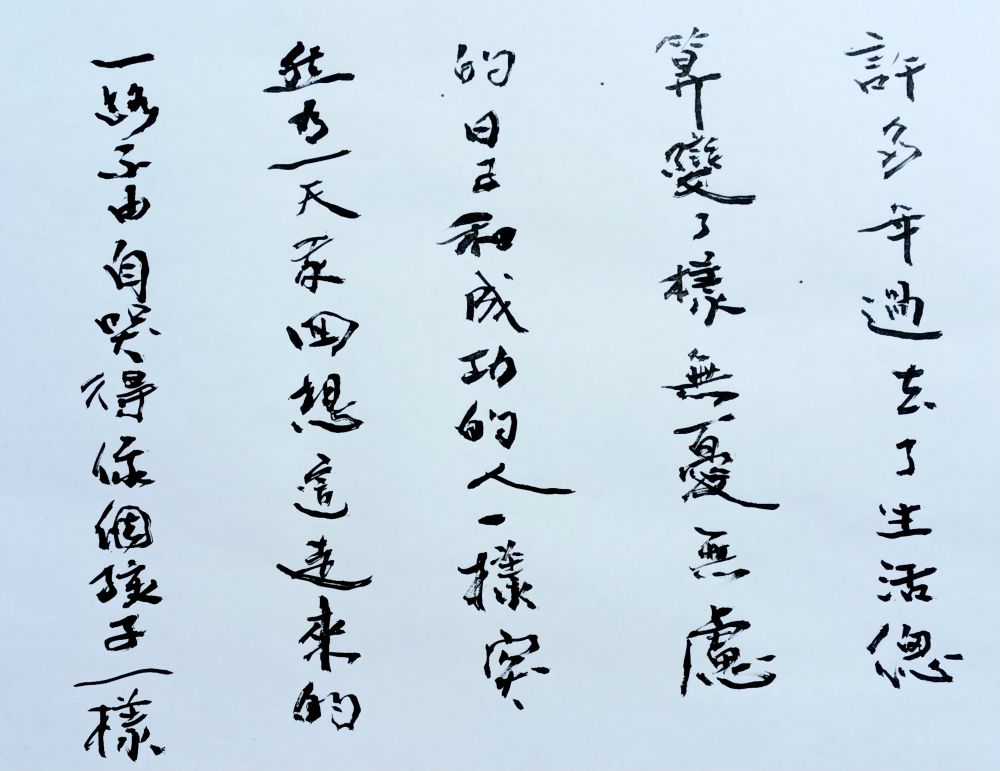 許多年過去了生活總
算變了樣無憂無慮
的日子和成功的人一樣突
然有一天回想這走來的
一路不由自哭得像個孩子一樣